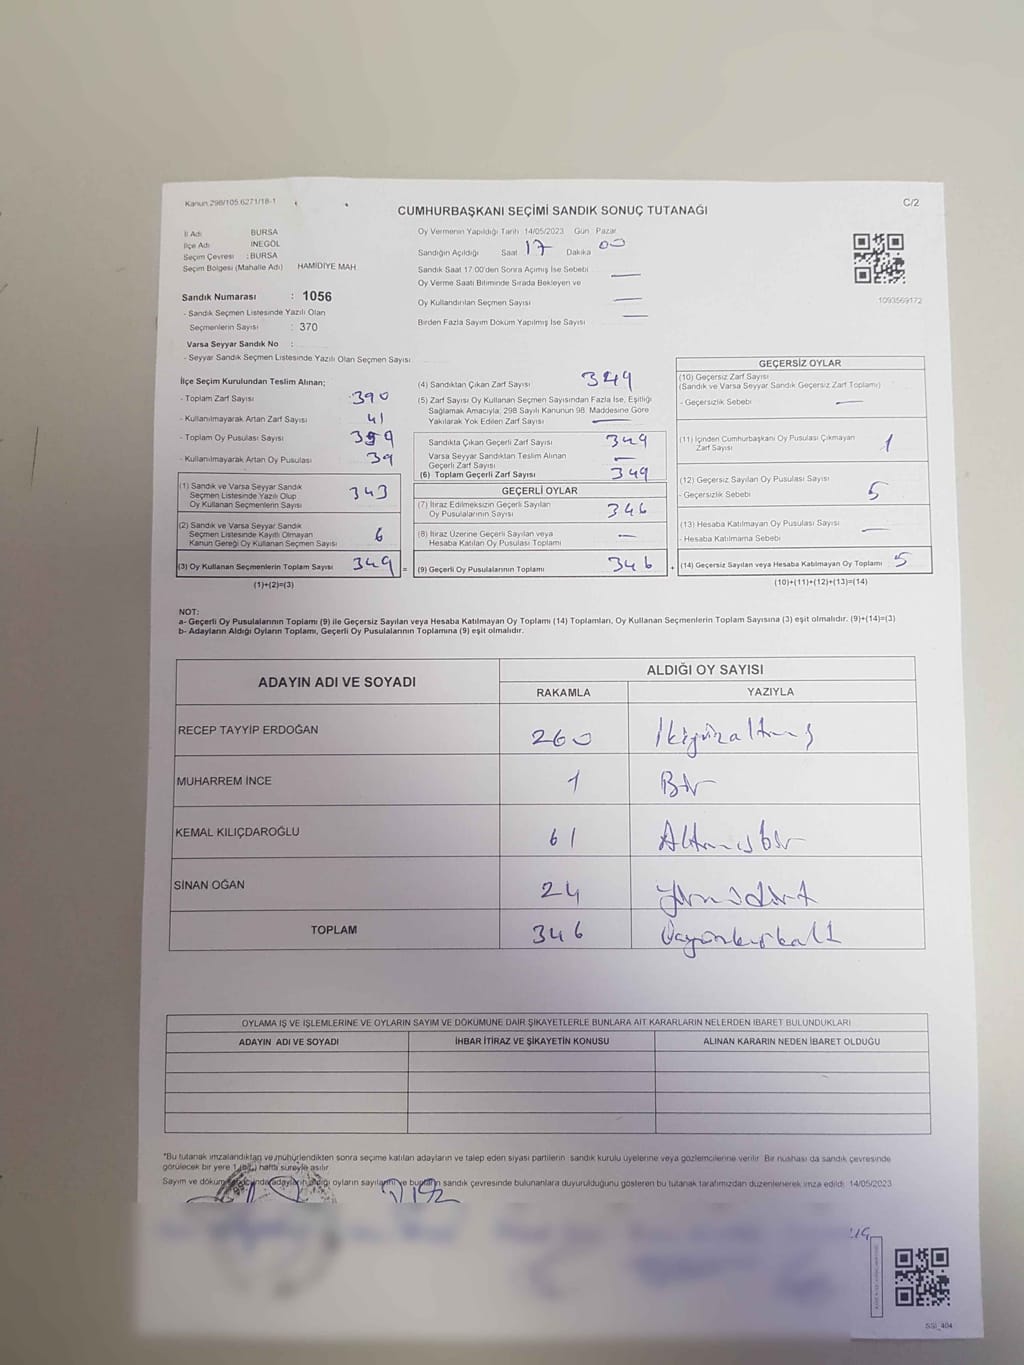 Kanun 298/105.6271/18-1
C/2
CUMHURBAŞKANI SEÇİMİ SANDIK SONUÇ TUTANAĞI
İl Adı BURSA
İlçe Adı İNEGÖL
Seçim Çevresi : BURSA
Seçim Bölgesi (Mahalle Adı) HAMİDİYE MAH.
Sandık Numarası : 1056
- Sandık Seçmen Listesinde Yazılı Olan
Seçmenlerin Sayısı : 370
Varsa Seyyar Sandık No :
- Seyyar Sandık Seçmen Listesinde Yazılı Olan Seçmen Sayısı
Oy Vermenin Yapıldığı Tarih: 14/05/2023 Gün: Pazar
Sandığın Açıldığı Saat 17 Dakika 00
Sandık Saat 17:00'den Sonra Açılmış İse Sebebi —
Oy Verme Saati Bitiminde Sırada Bekleyen ve
Oy Kullandırılan Seçmen Sayısı —
Birden Fazla Sayım Döküm Yapılmış İse Sayısı —
1093569172
İlçe Seçim Kurulundan Teslim Alınan;
- Toplam Zarf Sayısı 390
- Kullanılmayarak Artan Zarf Sayısı 41
- Toplam Oy Pusulası Sayısı
- Kullanılmayarak Artan Oy Pusulası 39
(1) Sandık ve Varsa Seyyar Sandık
Seçmen Listesinde Yazılı Olup
Oy Kullanan Seçmenlerin Sayısı 343
(2) Sandık ve Varsa Seyyar Sandık
Seçmen Listesinde Kayıtlı Olmayan
Kanun Gereği Oy Kullanan Seçmen Sayısı 6
(3) Oy Kullanan Seçmenlerin Toplam Sayısı 349 =
(1)+(2)=(3)
(4) Sandıktan Çıkan Zarf Sayısı 349
(5) Zarf Sayısı Oy Kullanan Seçmen Sayısından Fazla İse, Eşitliği
Sağlamak Amacıyla, 298 Sayılı Kanunun 98. Maddesine Göre
Yakılarak Yok Edilen Zarf Sayısı —
Sandıkta Çıkan Geçerli Zarf Sayısı 349
Varsa Seyyar Sandıktan Teslim Alınan
Geçerli Zarf Sayısı —
(6) Toplam Geçerli Zarf Sayısı 349
GEÇERLİ OYLAR
(7) İtiraz Edilmeksizin Geçerli Sayılan
Oy Pusulalarının Sayısı 346
(8) İtiraz Üzerine Geçerli Sayılan veya
Hesaba Katılan Oy Pusulası Toplamı —
(9) Geçerli Oy Pusulalarının Toplamı 346 +
GEÇERSİZ OYLAR
(10) Geçersiz Zarf Sayısı
(Sandık ve Varsa Seyyar Sandık Geçersiz Zarf Toplamı)
- Geçersizlik Sebebi —
(11) İçinden Cumhurbaşkanı Oy Pusulası Çıkmayan
Zarf Sayısı 1
(12) Geçersiz Sayılan Oy Pusulası Sayısı
- Geçersizlik Sebebi 5
(13) Hesaba Katılmayan Oy Pusulası Sayısı —
- Hesaba Katılmama Sebebi
(14) Geçersiz Sayılan veya Hesaba Katılmayan Oy Toplamı 5
(10)+(11)+(12)+(13)=(14)
NOT:
a- Geçerli Oy Pusulalarının Toplamı (9) ile Geçersiz Sayılan veya Hesaba Katılmayan Oy Toplamı (14) Toplamları, Oy Kullanan Seçmenlerin Toplam Sayısına (3) eşit olmalıdır. (9)+(14)=(3)
b- Adayların Aldığı Oyların Toplamı, Geçerli Oy Pusulalarının Toplamına (9) eşit olmalıdır.
ADAYIN ADI VE SOYADI ALDIĞI OY SAYISI
RAKAMLA YAZIYLA
RECEP TAYYİP ERDOĞAN 260 İkiyüzaltmış
MUHARREM İNCE 1 Bir
KEMAL KILIÇDAROĞLU 61 Altmışbir
SİNAN OĞAN 24 Yirmidört
TOPLAM 346 Üçyüzkırkaltı
OYLAMA İŞ VE İŞLEMLERİNE VE OYLARIN SAYIM VE DÖKÜMÜNE DAİR ŞİKAYETLERLE BUNLARA AİT KARARLARIN NELERDEN İBARET BULUNDUKLARI
ADAYIN ADI VE SOYADI İHBAR İTİRAZ VE ŞİKAYETİN KONUSU ALINAN KARARIN NEDEN İBARET OLDUĞU
*Bu tutanak imzalandıktan ve mühürlendikten sonra seçime katılan adayların ve talep eden siyasi partilerin sandık kurulu üyelerine veya gözlemcilerine verilir. Bir nüshası da sandık çevresinde
görülecek bir yere 1 (bir) hafta süreyle asılır.
Sayım ve döküm oyların sayılarını ve bunların sandık çevresinde bulunanlara duyurulduğunu gösteren bu tutanak tarafımızdan düzenlenerek imza edildi. 14/05/2023
SSİ_404